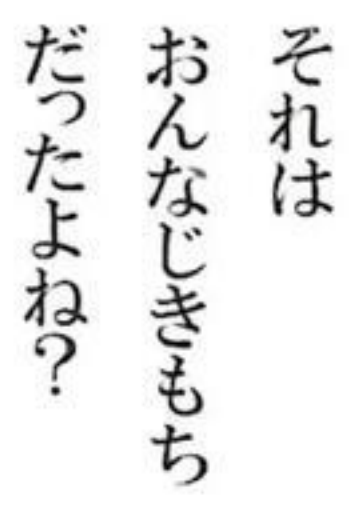 それは
おんなじきもち
だったよね?